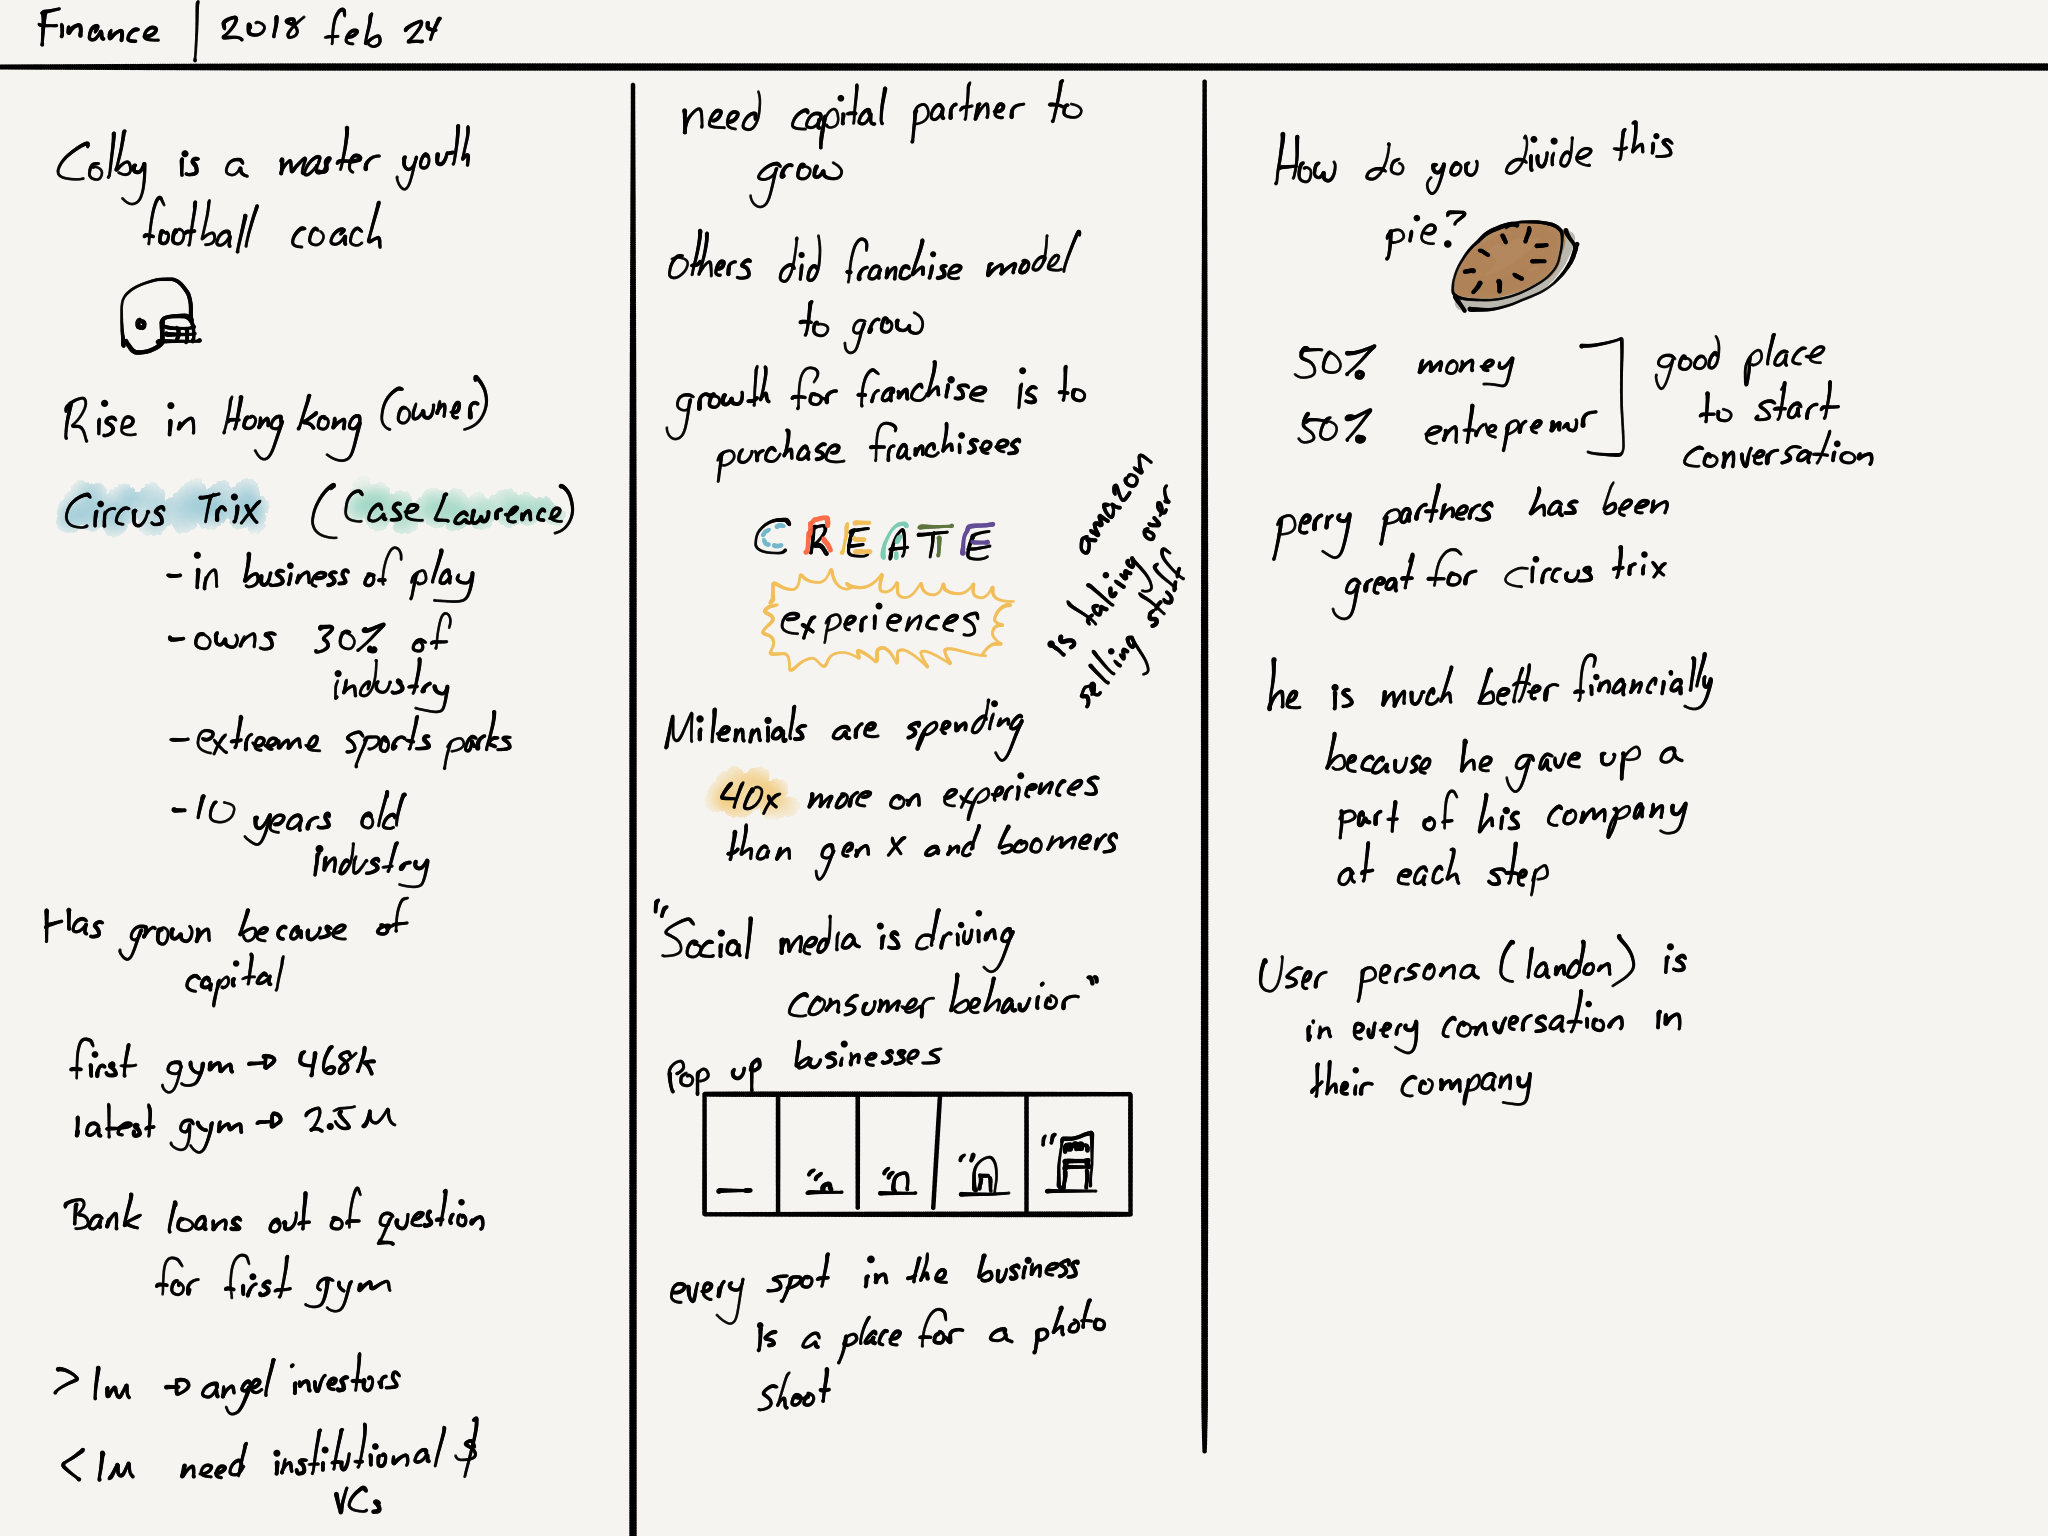 Finance | 2018 feb 24
Colby is a master youth
football coach
Rise in Hong kong (owner)
Circus Trix (Case Lawrence)
- in business of play
- owns 30% of
industry
- extreeme sports parks
- 10 years old
industry
Has grown because of
capital
first gym → 468k
latest gym → 2.5M
Bank loans out of question
for first gym
> 1m → angel investors
< 1M need institutional $
VCs
need capital partner to
grow
Others did franchise model
to grow
growth for franchise is to
purchase franchisees
CREATE
experiences
amazon
is taking over
selling stuff
Milennials are spending
40x more on experiences
than gen X and boomers
"Social media is driving
consumer behavior"
Pop up businesses
every spot in the business
is a place for a photo
shoot
How do you divide this
pie?
50% money
50% entreprenur
good place
to start
conversation
perry partners has been
great for circus trix
he is much better financially
because he gave up a
part of his company
at each step
User persona (landon) is
in every conversation in
their company